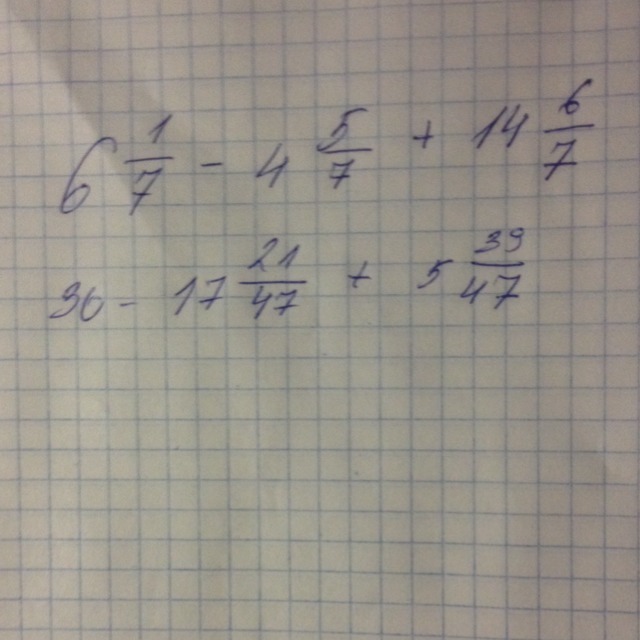 6 1/7 - 4 5/7 + 14 6/7
30 - 17 21/47 + 5 39/47